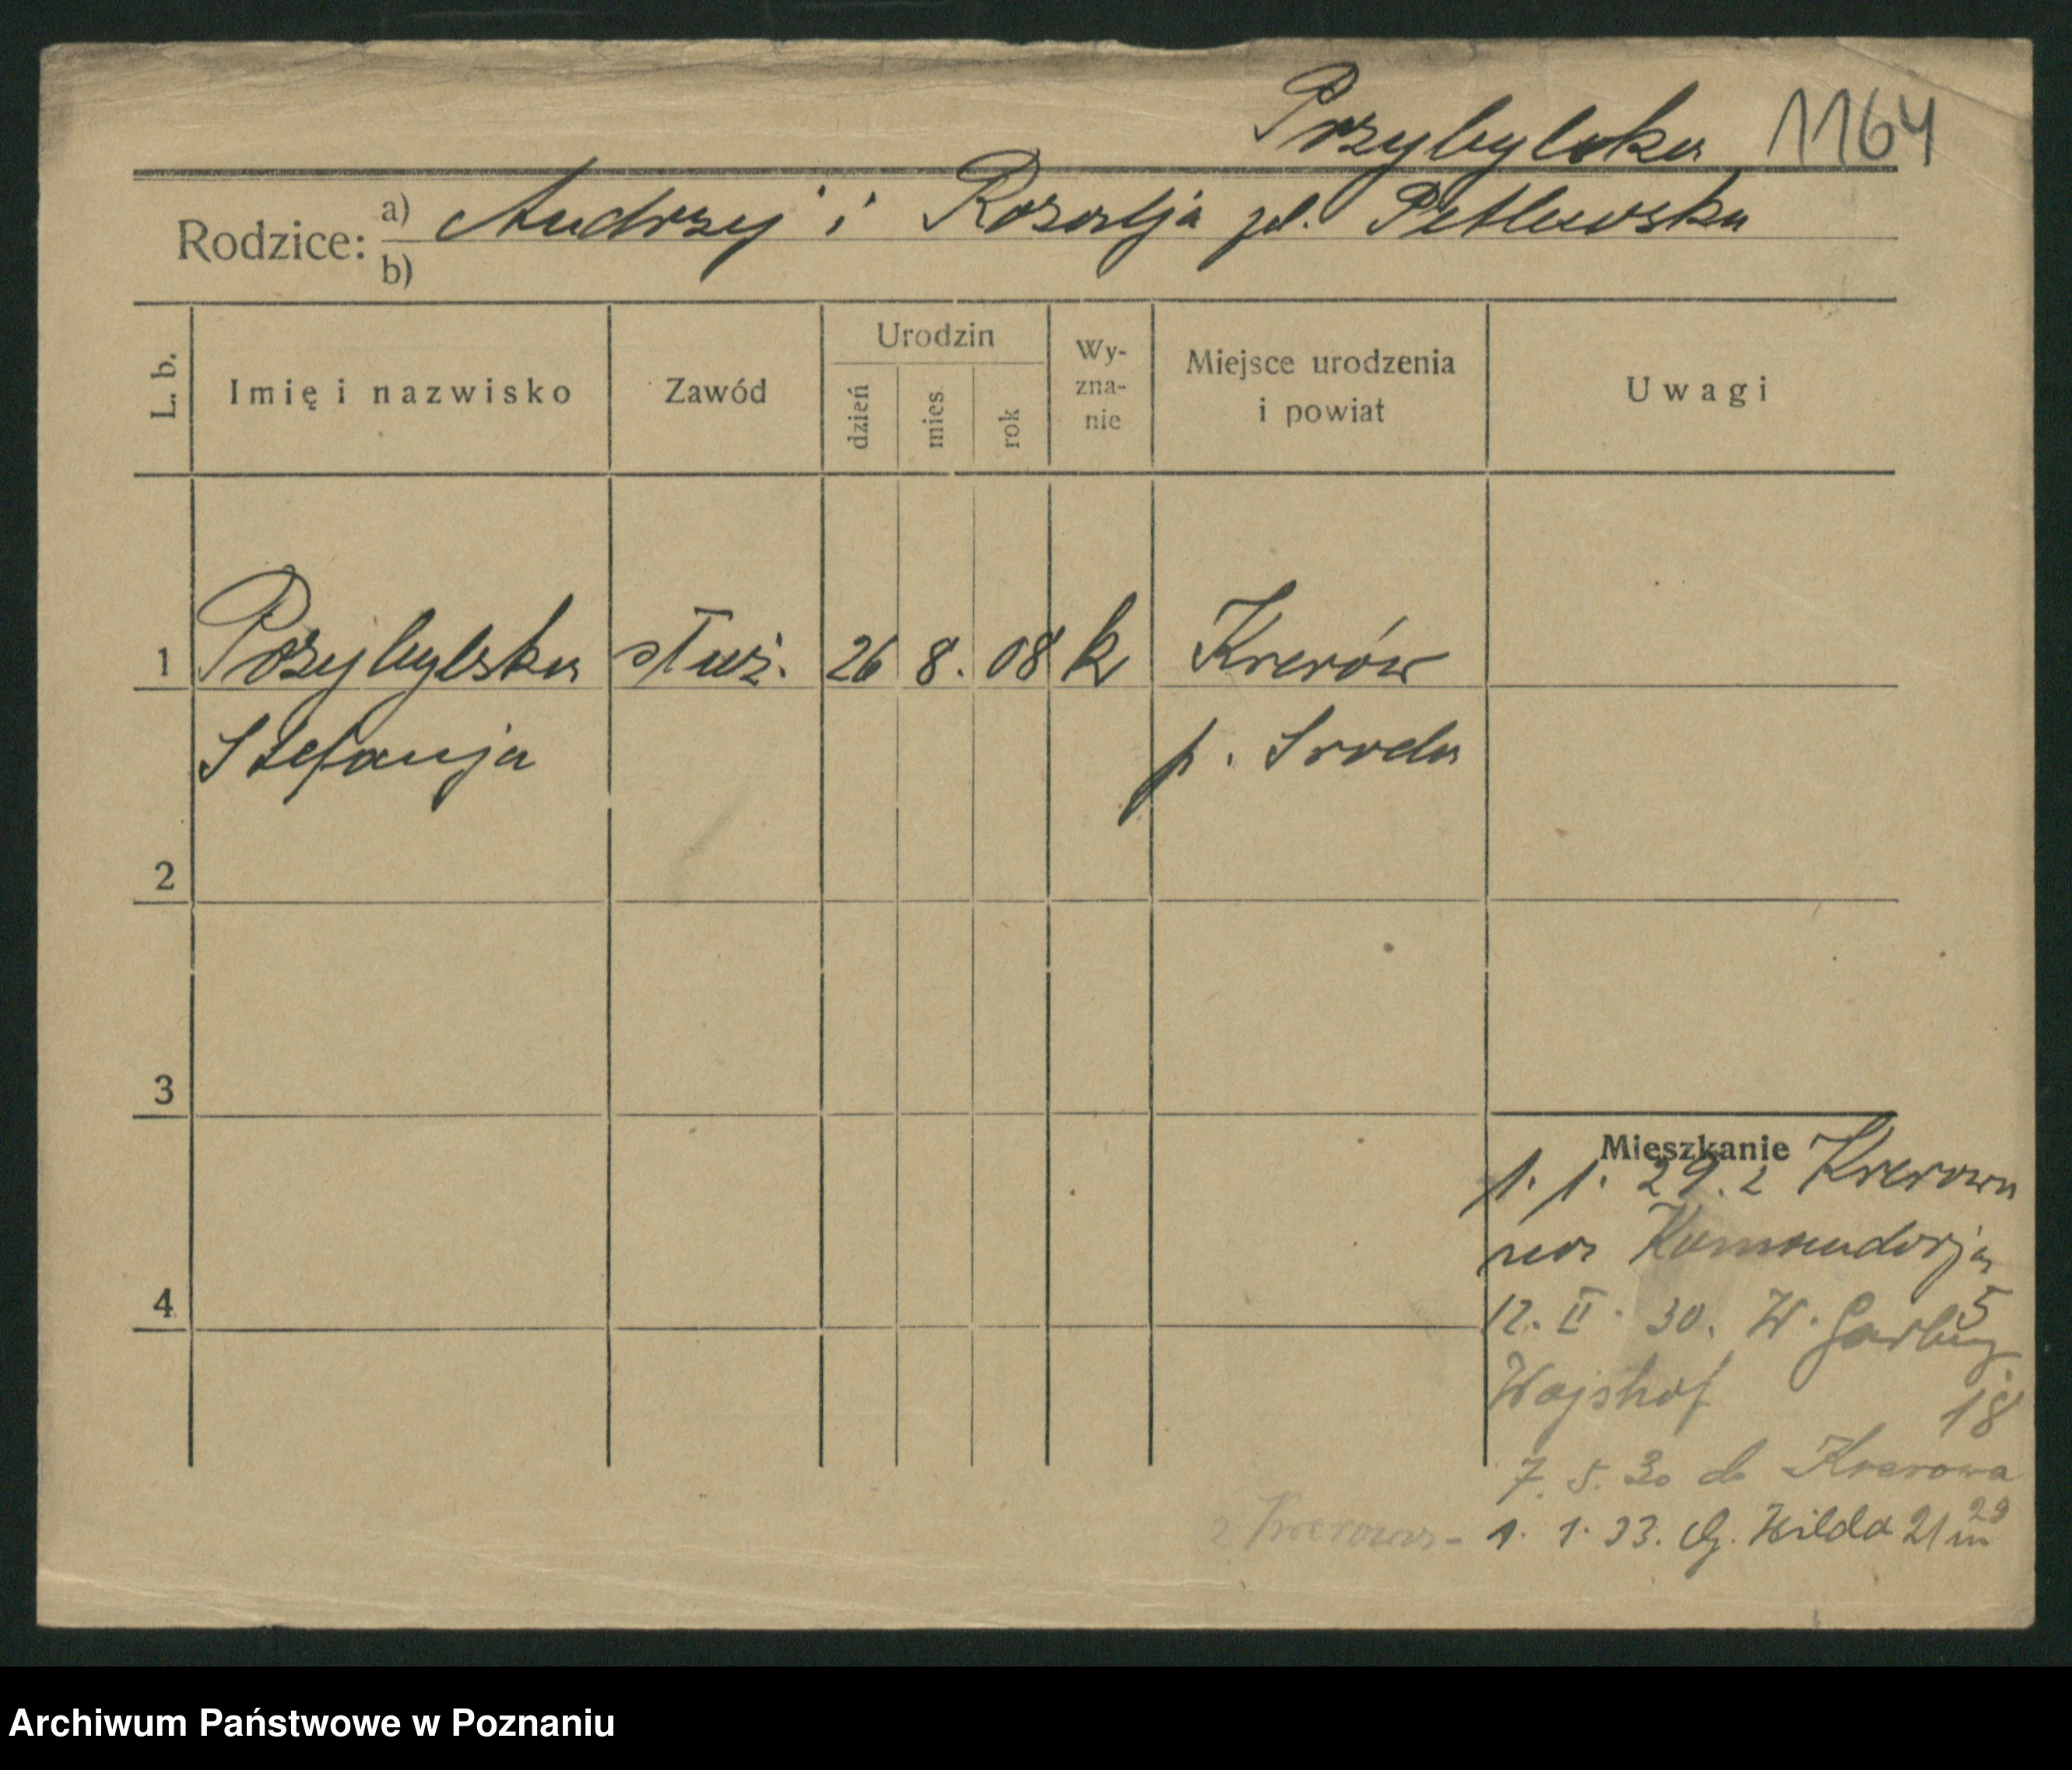 Przybylska 1164
Rodzice: a) Andrzej i Rozalja zd. Petlewska
b)
L. b. Imię i nazwisko Zawód Urodzin dzień mies. rok Wy-zna-nie Miejsce urodzenia i powiat Uwagi
1 Przybylska służ. 26 8. 08 k Krerów
Stefanja p. Środa
2
3
Mieszkanie
p. p. 29. 2 Krerowa
na Komandorja
5
4
12. II. 30. W. Garbary
Wajshof 18
7. 5. 30 do Krerowa
z Krerowa - 1. 1. 33. G. Wilda 21 29
Archiwum Państwowe w Poznaniu